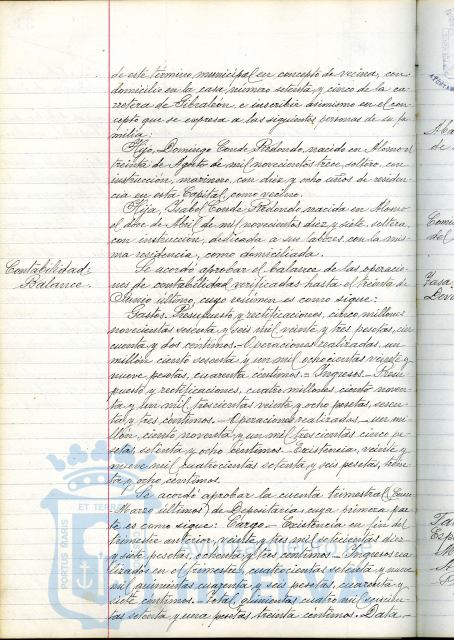 de este término municipal en concepto de vecina, con
domicilio en la casa número setenta y cinco de la ca-
rretera de Gibraleón, e inscribir asimismo en el con-
cepto que se expresa a las siguientes personas de su fa-
milia:
Hijo, Domingo Conde Redondo, nacido en Alosno el
treinta de Agosto de mil novecientos trece, soltero, con
instrucción, marinero, con diez y ocho años de residen-
cia en esta Capital, como vecino.
Hija, Isabel Conde Redondo nacida en Alosno
el doce de Abril de mil novecientos diez y siete, soltera,
con instrucción, dedicada a sus labores con la mis-
ma residencia, como domiciliada.
Contabilidad:
Balance.
Se acordó aprobar el balance de las operacio-
nes de contabilidad verificadas hasta el treinta de
Junio último, cuyo resumen es como sigue:
Gastos. Presupuesto y rectificaciones, cinco millones
novecientos sesenta y seis mil veinte y tres pesetas, cin-
cuenta y dos céntimos.- Operaciones realizadas un
millón ciento sesenta y un mil ochocientas veinte y
nueve pesetas, cuarenta céntimos.= Ingresos.- Presu-
puesto y rectificaciones, cuatro millones, ciento noven-
ta y un mil trescientas veinte y ocho pesetas, sesen-
ta y tres céntimos.- Operaciones realizadas.- un mi-
llón, ciento noventa y un mil trescientas cinco pe-
setas, setenta y ocho céntimos.- Existencia, veinte y
nueve mil cuatrocientas setenta y seis pesetas, trein-
ta y ocho céntimos.
Se acordó aprobar la cuenta trimestral (Enero
Marzo últimos) de Depositaría, cuya primera par-
te es como sigue: Cargo.- Existencia en fin del
trimestre anterior, veinte y tres mil setecientas diez
y siete pesetas, ochenta y tres céntimos.- Ingresos rea-
lizados en el trimestre, cuatrocientas setenta y nueve
mil quinientas cuarenta y seis pesetas, cuarenta y
siete céntimos.- Total quinientas cuatro mil
tas setenta y una pesetas treinta céntimos. Data.-
PORTUS MARIS
ET TERR